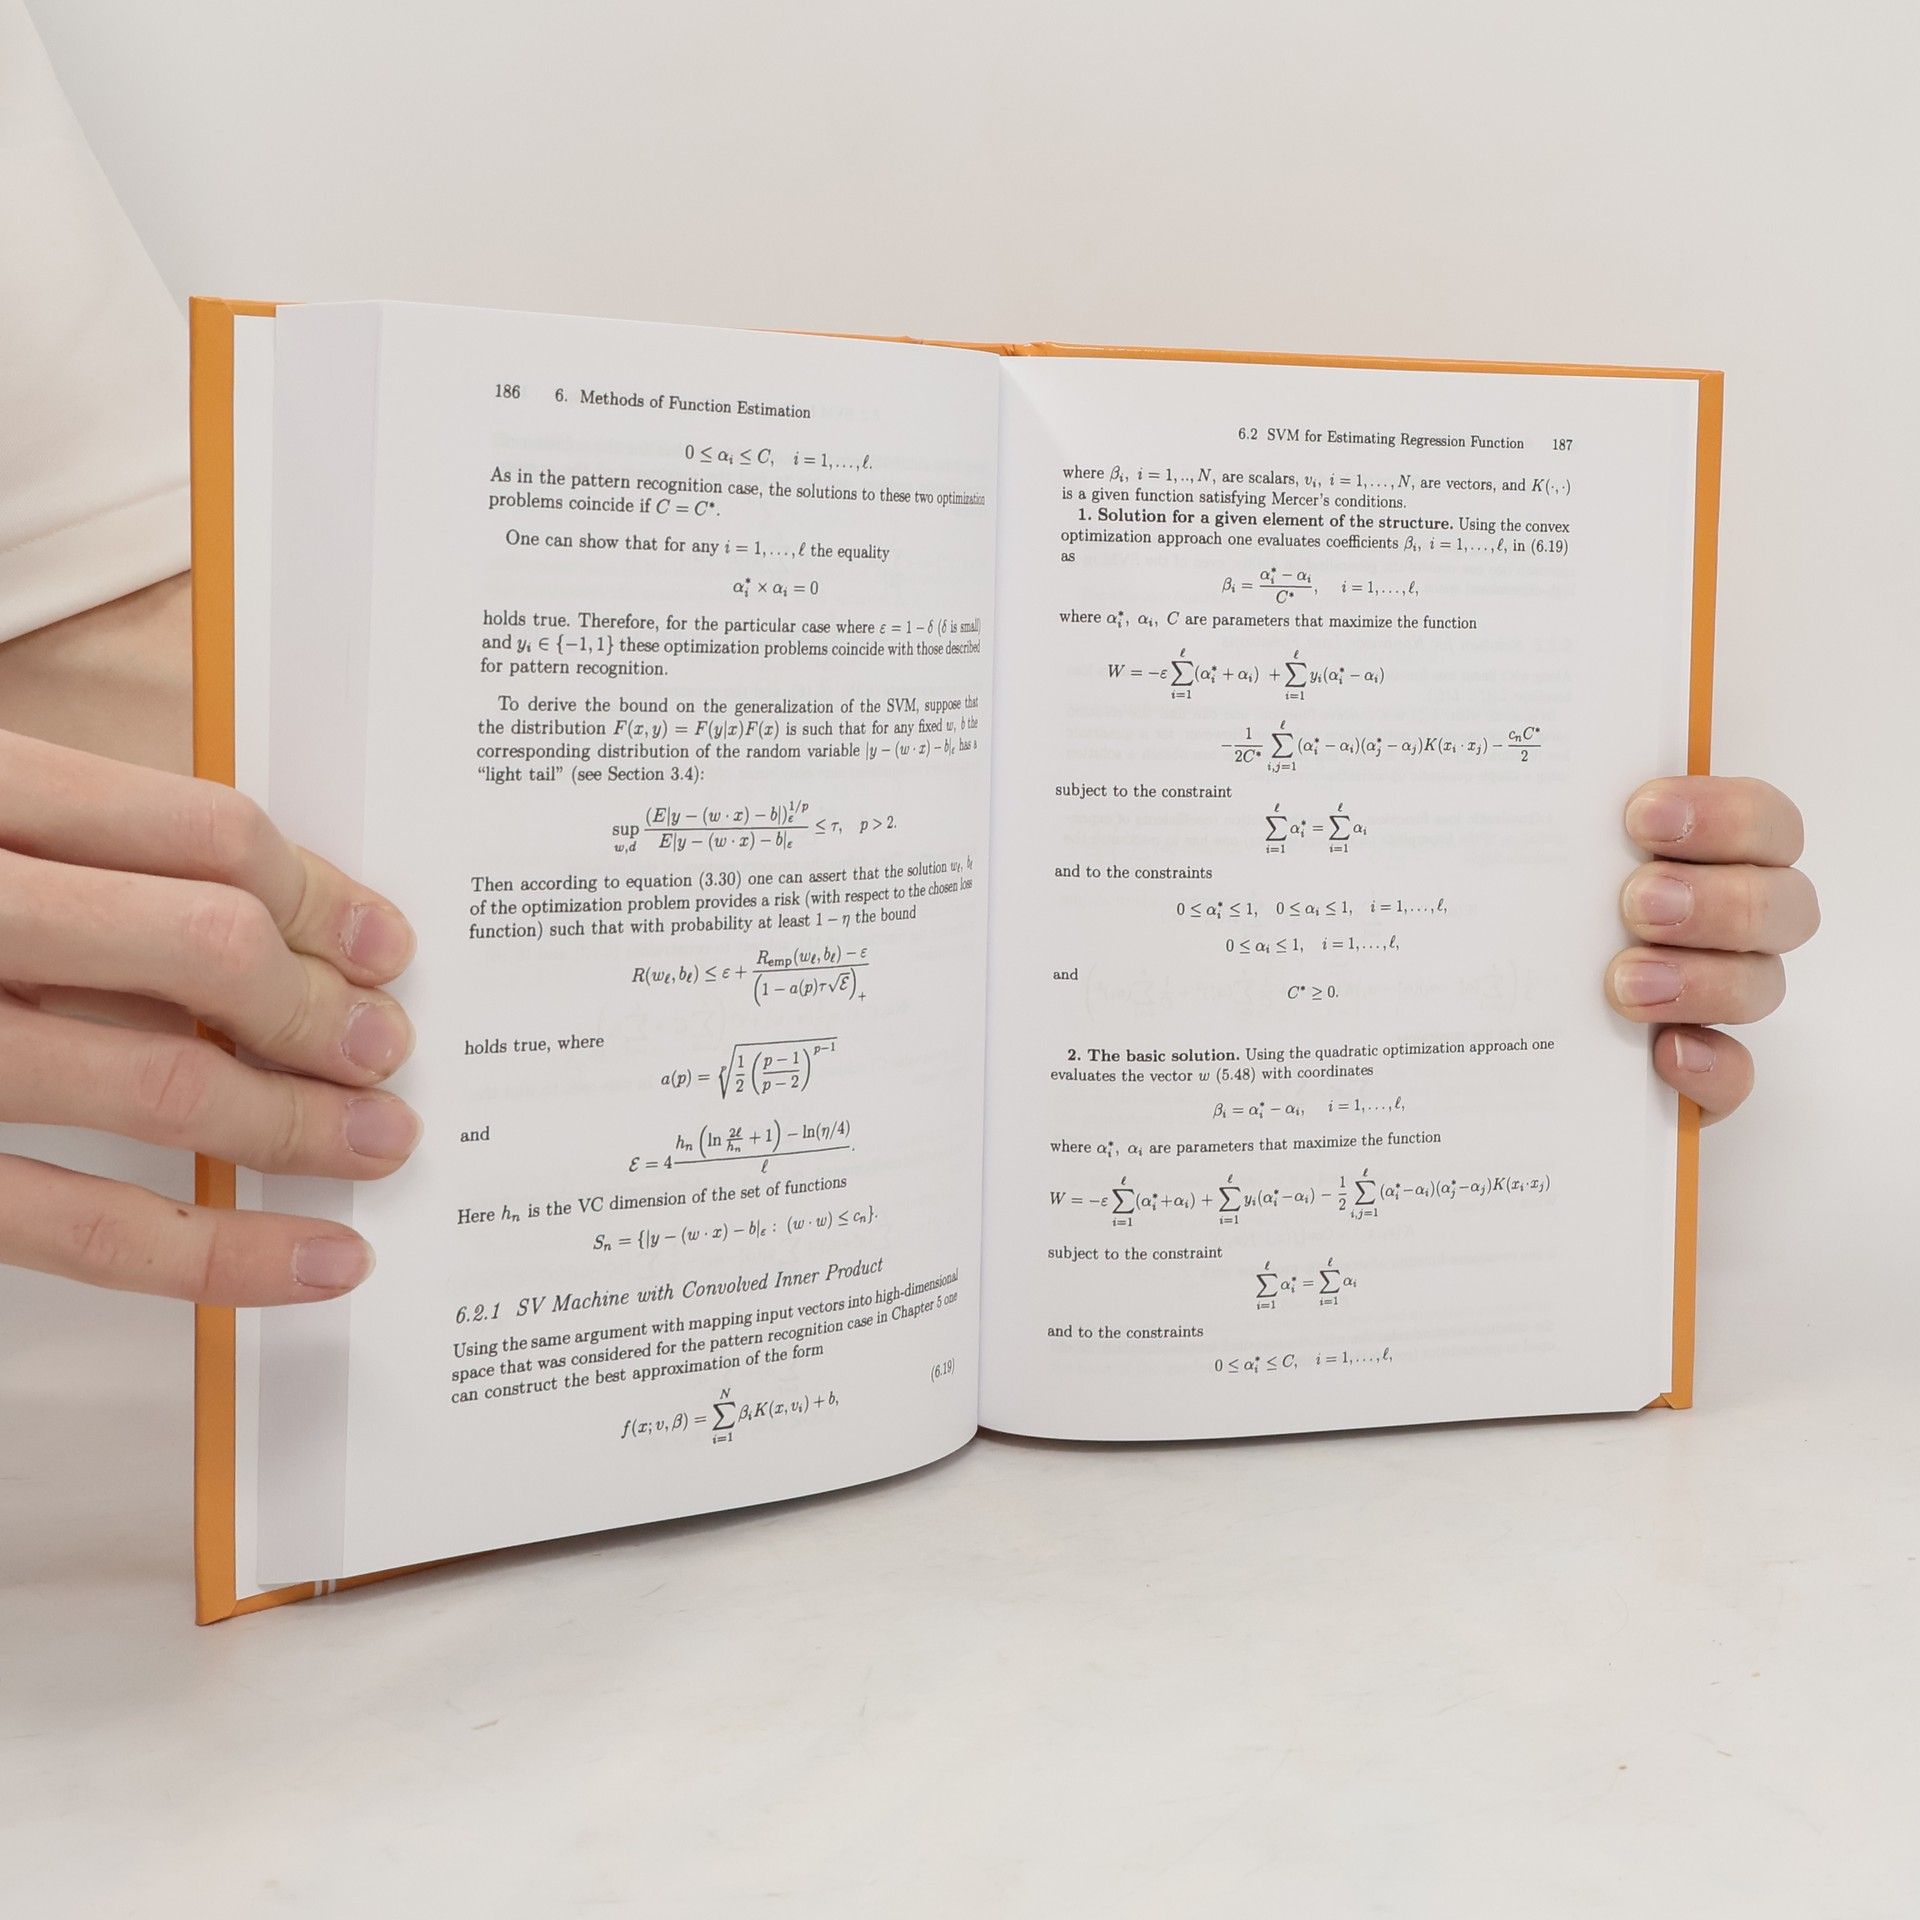 186 6. Methods of Function Estimation
0 ≤ αᵢ ≤ C, i = 1,...,ℓ.
As in the pattern recognition case, the solutions to these two optimization
problems coincide if C = C*.
One can show that for any i = 1,...,ℓ the equality
αᵢ* × αᵢ = 0
holds true. Therefore, for the particular case where ε = 1 − δ (δ is small)
and yᵢ ∈ {−1, 1} these optimization problems coincide with those described
for pattern recognition.
To derive the bound on the generalization of the SVM, suppose that
the distribution F(x, y) = F(y|x)F(x) is such that for any fixed w, b the
corresponding distribution of the random variable |y − (w · x) − b|_ε has a
“light tail” (see Section 3.4):
sup_{w,d} (E|y − (w · x) − b|)_ε^{1/p} / E|y − (w · x) − b|_ε ≤ τ, p > 2.
Then according to equation (3.30) one can assert that the solution w_ℓ, b_ℓ
of the optimization problem provides a risk (with respect to the chosen loss
function) such that with probability at least 1 − η the bound
R(w_ℓ, b_ℓ) ≤ ε + (R_emp(w_ℓ, b_ℓ) − ε) / (1 − a(p)τ√ℰ)₊
holds true, where
a(p) = ᵖ√(1/2 ((p − 1)/(p − 2))^{p−1})
and
ℰ = 4 (h_n (ln 2ℓ/h_n + 1) − ln(η/4)) / ℓ.
Here h_n is the VC dimension of the set of functions
S_n = {|y − (w · x) − b|_ε : (w · w) ≤ c_n}.
6.2.1 SV Machine with Convolved Inner Product
Using the same argument with mapping input vectors into high-dimensional
space that was considered for the pattern recognition case in Chapter 5 one
can construct the best approximation of the form
f(x; v, β) = ∑_{i=1}^{N} βᵢK(x, vᵢ) + b, (6.19)
6.2 SVM for Estimating Regression Function 187
where βᵢ, i = 1,..,N, are scalars, vᵢ, i = 1,...,N, are vectors, and K(·,·)
is a given function satisfying Mercer's conditions.
1. Solution for a given element of the structure. Using the convex
optimization approach one evaluates coefficients βᵢ, i = 1,...,ℓ, in (6.19)
as
βᵢ = (αᵢ* − αᵢ)/C*, i = 1,...,ℓ,
where αᵢ*, αᵢ, C are parameters that maximize the function
W = −ε∑_{i=1}^{ℓ}(αᵢ* + αᵢ) + ∑_{i=1}^{ℓ} yᵢ(αᵢ* − αᵢ)
−1/(2C*) ∑_{i,j=1}^{ℓ}(αᵢ* − αᵢ)(αⱼ* − αⱼ)K(xᵢ · xⱼ) − c_nC*/2
subject to the constraint
∑_{i=1}^{ℓ} αᵢ* = ∑_{i=1}^{ℓ} αᵢ
and to the constraints
0 ≤ αᵢ* ≤ 1, 0 ≤ αᵢ ≤ 1, i = 1,...,ℓ,
0 ≤ αᵢ ≤ 1, i = 1,...,ℓ,
and
C* ≥ 0.
2. The basic solution. Using the quadratic optimization approach one
evaluates the vector w (5.48) with coordinates
βᵢ = αᵢ* − αᵢ, i = 1,...,ℓ,
where αᵢ*, αᵢ are parameters that maximize the function
W = −ε∑_{i=1}^{ℓ}(αᵢ* + αᵢ) + ∑_{i=1}^{ℓ} yᵢ(αᵢ* − αᵢ) − 1/2 ∑_{i,j=1}^{ℓ}(αᵢ* − αᵢ)(αⱼ* − αⱼ)K(xᵢ · xⱼ)
subject to the constraint
∑_{i=1}^{ℓ} αᵢ* = ∑_{i=1}^{ℓ} αᵢ
and to the constraints
0 ≤ αᵢ* ≤ C, i = 1,...,ℓ,